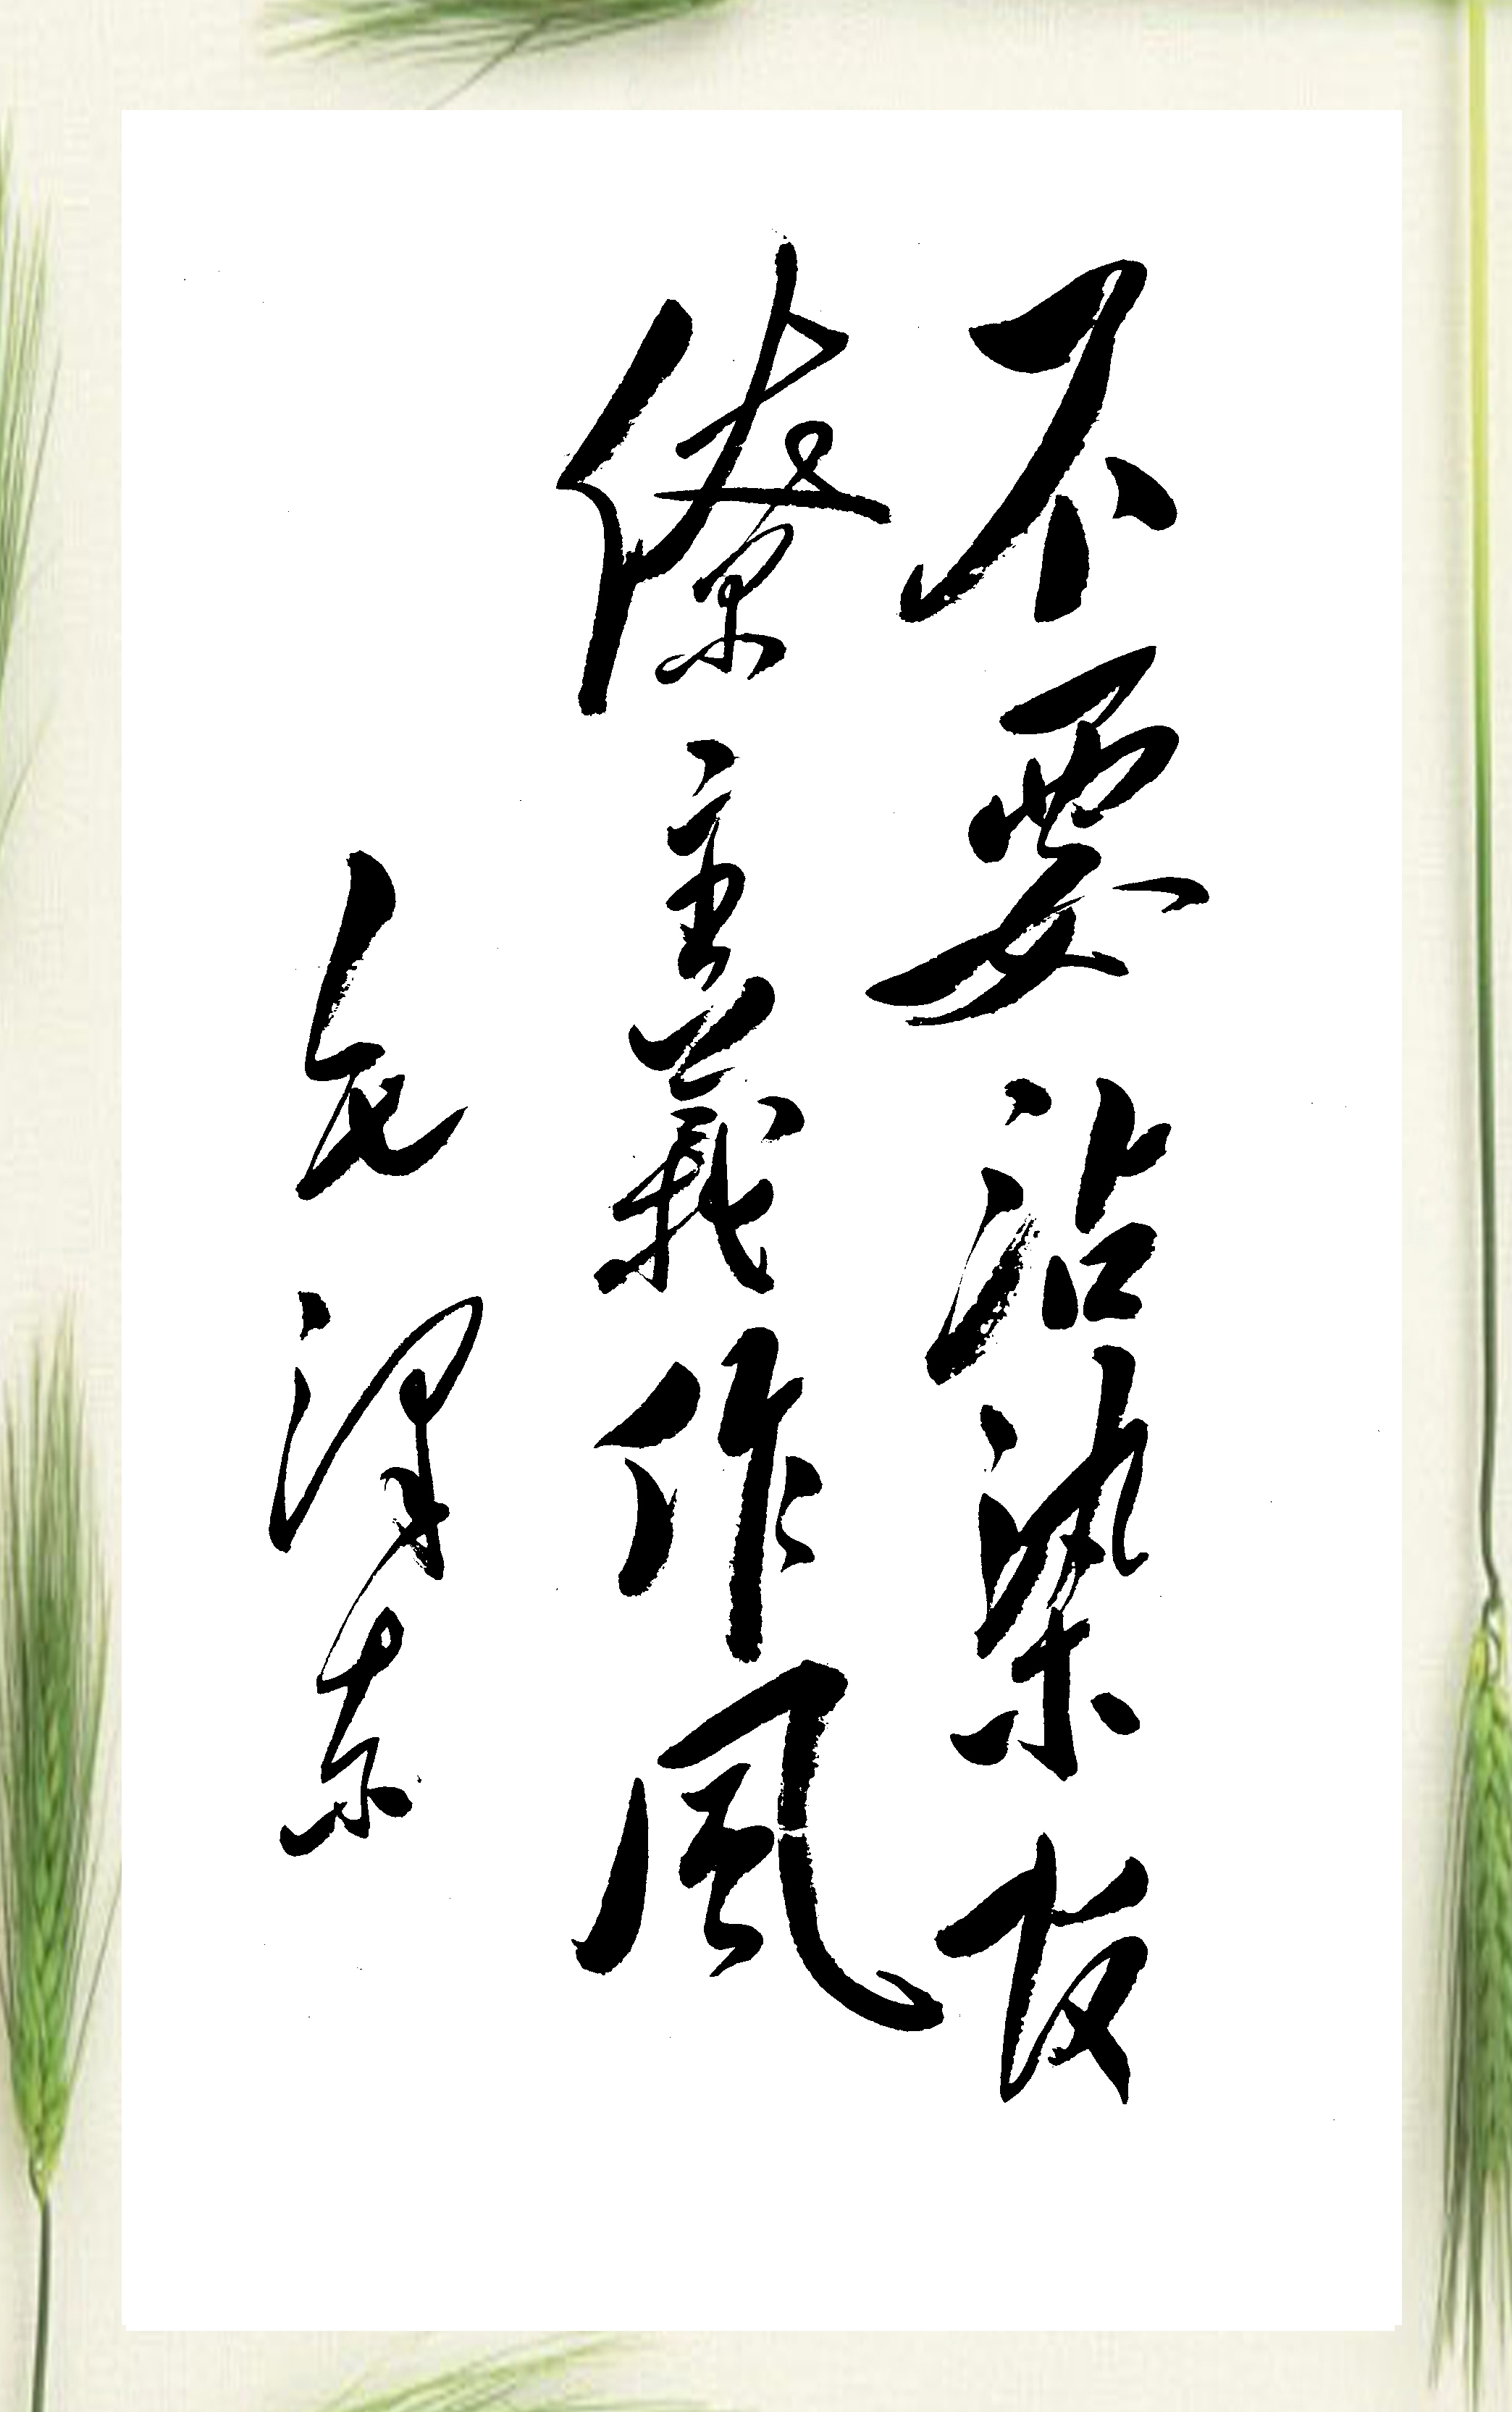 不要沾染友
僚主義作風
毛澤東